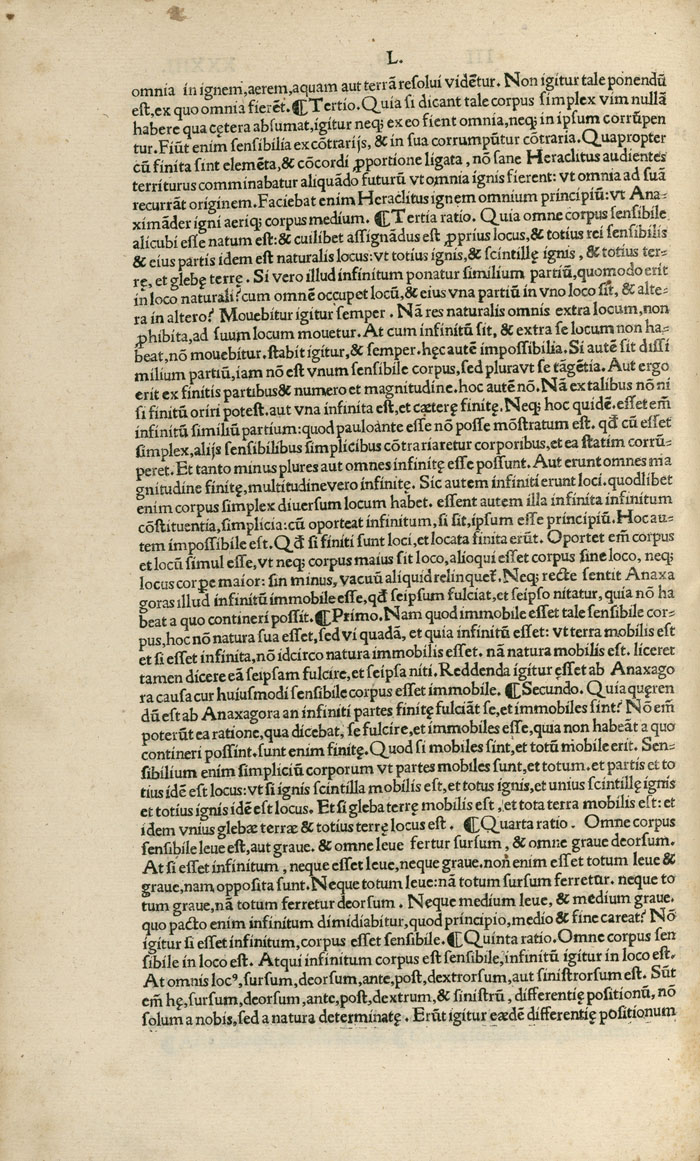 L.
omnia in ignem,aerem,aquam aut terrã resolui vidẽtur. Non igitur tale ponendũ
est,ex quo omnia fierẽt.¶Tertio.Quia si dicant tale corpus simplex vim nullã
habere qua cętera absumat,igitur neq; ex eo fient omnia,neq; in ipsum corrũpen
tur.Fiũt enim sensibilia ex cõtrarijs, & in sua corrumpũtur cõtraria.Quapropter
cũ finita sint elemẽta,& cõcordi ꝓportione ligata , nõ sane Heraclitus audientes
territurus comminabatur aliquãdo futurũ vt omnia ignis fierent: vt omnia ad suã
recurrãt originem.Faciebat enim Heraclitus ignem omnium principiũ:vt Ana-
ximãder igni aeriq; corpus medium. ¶Tertia ratio. Quia omne corpus sensibile
alicubi esse natum est:& cuilibet assignãdus est ꝓprius locus,& totius rei sensibilis
& eius partis idem est naturalis locus:vt totius ignis,& scintillę ignis , & totius ter-
rę, et glebę terrę . Si vero illud infinitum ponatur similium partiũ,quomodo erit
in loco naturali?cum omnẽ occupet locũ,& eius vna partiũ in vno loco sit, & alte-
ra in altero? Mouebitur igitur semper . Nã res naturalis omnis extra locum,non
ꝓhibita,ad suum locum mouetur. At cum infinitũ sit, & extra se locum non ha-
beat,nõ mouebitur.stabit igitur,& semper.hęc autẽ impossibilia.Si autẽ sit dissi
milium partiũ,iam nõ est vnum sensibile corpus,sed plura vt se tãgẽtia. Aut ergo
erit ex finitis partibus & numero et magnitudine.hoc autẽ nõ.Nã ex talibus nõ ni
si finitũ oriri potest.aut vna infinita est,et cæterę finitę.Neq; hoc quidẽ.esset em̃
infinitũ similiũ partium:quod pauloante esse nõ posse mõstratum est. qđ cũ esset
simplex,alijs sensibilibus simplicibus cõtrariaretur corporibus,et ea statim corrũ-
peret. Et tanto minus plures aut omnes infinitę esse possunt. Aut erunt omnes ma
gnitudine finitę,multitudine vero infinitę. Sic autem infiniti erunt loci.quodlibet
enim corpus simplex diuersum locum habet. essent autem illa infinita infinitum
cõstituentia,simplicia:cũ oporteat infinitum,si sit,ipsum esse principiũ.Hoc au-
tem impossibile est.Qđ si finiti sunt loci,et locata finita erũt. Oportet em̃ corpus
et locũ simul esse,vt neq; corpus maius sit loco,alioqui esset corpus sine loco, neq;
locus corpe maior: sin minus, vacuũ aliquid relinquet̃. Neq; recte sentit Anaxa
goras illud infinitũ immobile esse,qđ seipsum fulciat,et seipso nitatur, quia nõ ha
beat a quo contineri possit.¶Primo.Nam quod immobile esset tale sensibile cor-
pus,hoc nõ natura sua esset,sed vi quadã, et quia infinitũ esset: vt terra mobilis est
et si esset infinita,nõ idcirco natura immobilis esset. nã natura mobilis est. liceret
tamen dicere eã seipsam fulcire,et seipsa niti.Reddenda igitur ęsset ab Anaxago
ra causa cur huiusmodi sensibile corpus esset immobile. ¶Secundo. Quia quęren
dũ est ab Anaxagora an infiniti partes finitę fulciãt se,et immobiles sint? Nõ em̃
poterũt ea ratione,qua dicebat, se fulcire,et immobiles esse,quia non habeãt a quo
contineri possint.sunt enim finitę.Quod si mobiles sint,et totũ mobile erit. Sen-
sibilium enim simpliciũ corporum vt partes mobiles sunt,et totum.et partis et to
tius idẽ est locus:vt si ignis scintilla mobilis est,et totus ignis,et unius scintillę ignis
et totius ignis idẽ est locus. Et si gleba terrę mobilis est , et tota terra mobilis est: et
idem vnius glebæ terræ & totius terrę locus est . ¶Quarta ratio . Omne corpus
sensibile leue est,aut graue. & omne leue fertur sursum , & omne graue deorsum.
At si esset infinitum , neque esset leue,neque graue.non enim esset totum leue &
graue,nam opposita sunt.Neque totum leue:nã totum sursum ferretur. neque to
tum graue,nã totum ferretur deorsum . Neque medium leue, & medium graue.
quo pacto enim infinitum dimidiabitur,quod principio,medio & fine careat? Nõ
igitur si esset infinitum,corpus esset sensibile.¶Quinta ratio.Omne corpus sen
sibile in loco est. Atqui infinitum corpus est sensibile,infinitũ igitur in loco est.
At omnis locꝰ, sursum,deorsum,ante,post,dextrorsum,aut sinistrorsum est. Sũt
em̃ hę,sursum,deorsum,ante,post,dextrum,& sinistrũ , differentię positionũ, nõ
solum a nobis,sed a natura determinatę . Erũt igitur eædẽ differentię positionum